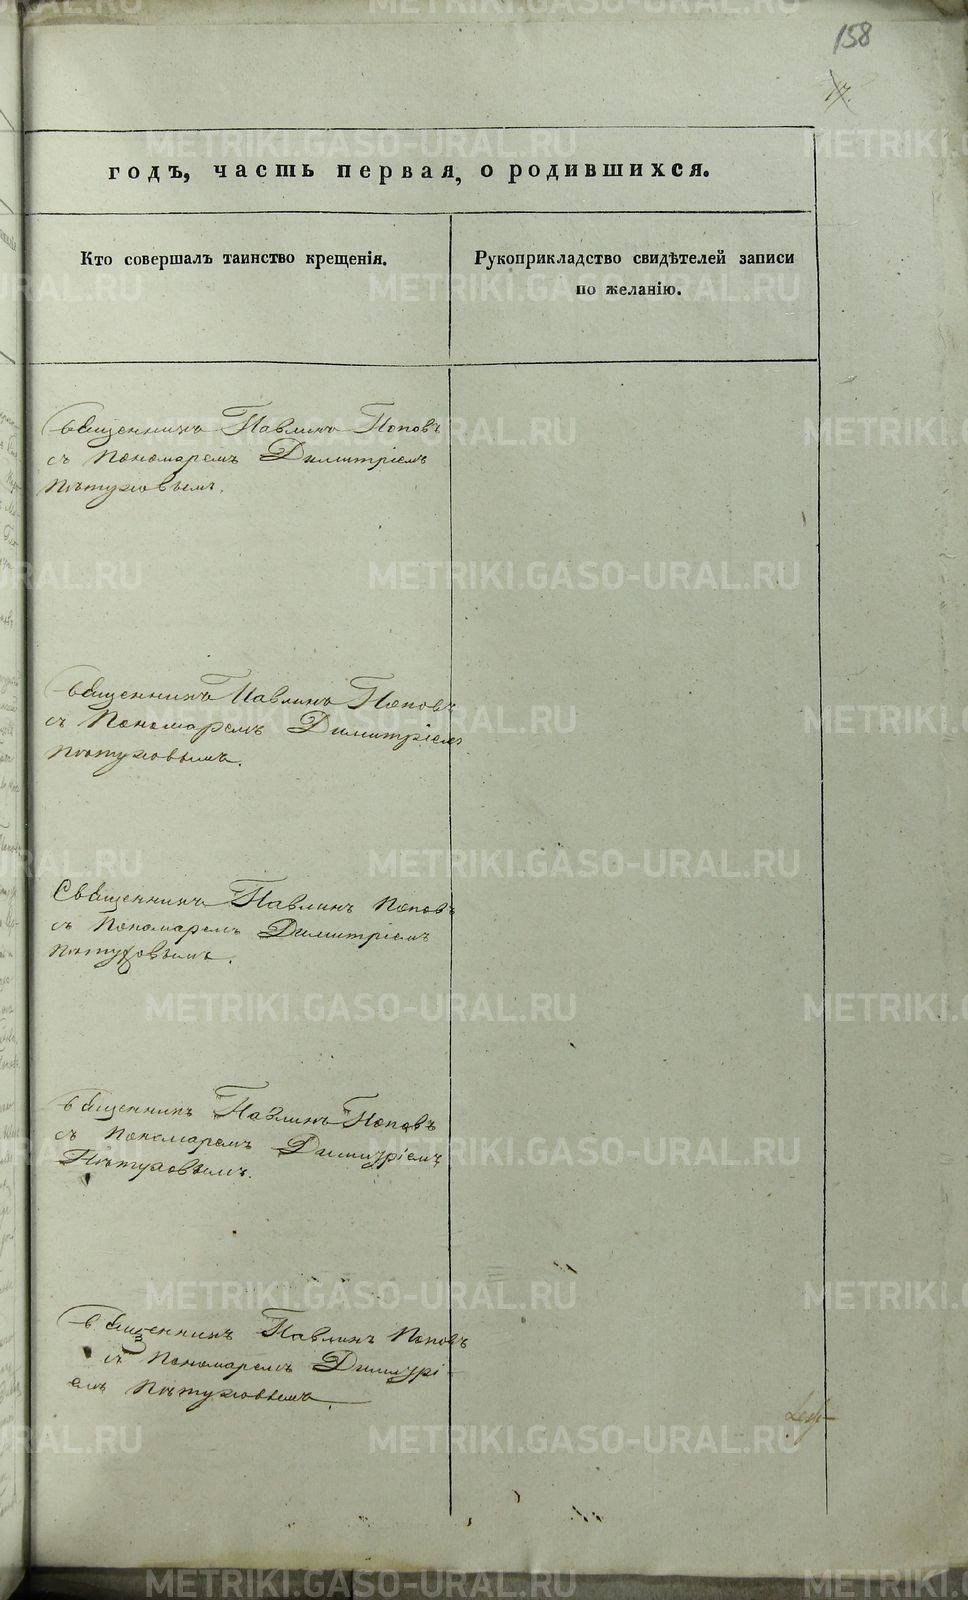 158
17.
годъ, часть первая, о родившихся.
Кто совершалъ таинство крещенія.
Рукоприкладство свидѣтелей записи
по желанію.
Священникъ Павлинъ Поповъ
съ Пономаремъ Димитріемъ
Пѣтуховымъ.
Священникъ Павлинъ Поповъ
съ Пономаремъ Димитріемъ
Пѣтуховымъ.
Священникъ Павлинъ Поповъ
съ Пономаремъ Димитріемъ
Пѣтуховымъ.
Священникъ Павлинъ Поповъ
съ Пономаремъ Димитріемъ
Пѣтуховымъ.
Священникъ Павлинъ Поповъ
съ Пономаремъ Димитрі-
емъ Пѣтуховымъ.
METRIKI.GASO-URAL.RU